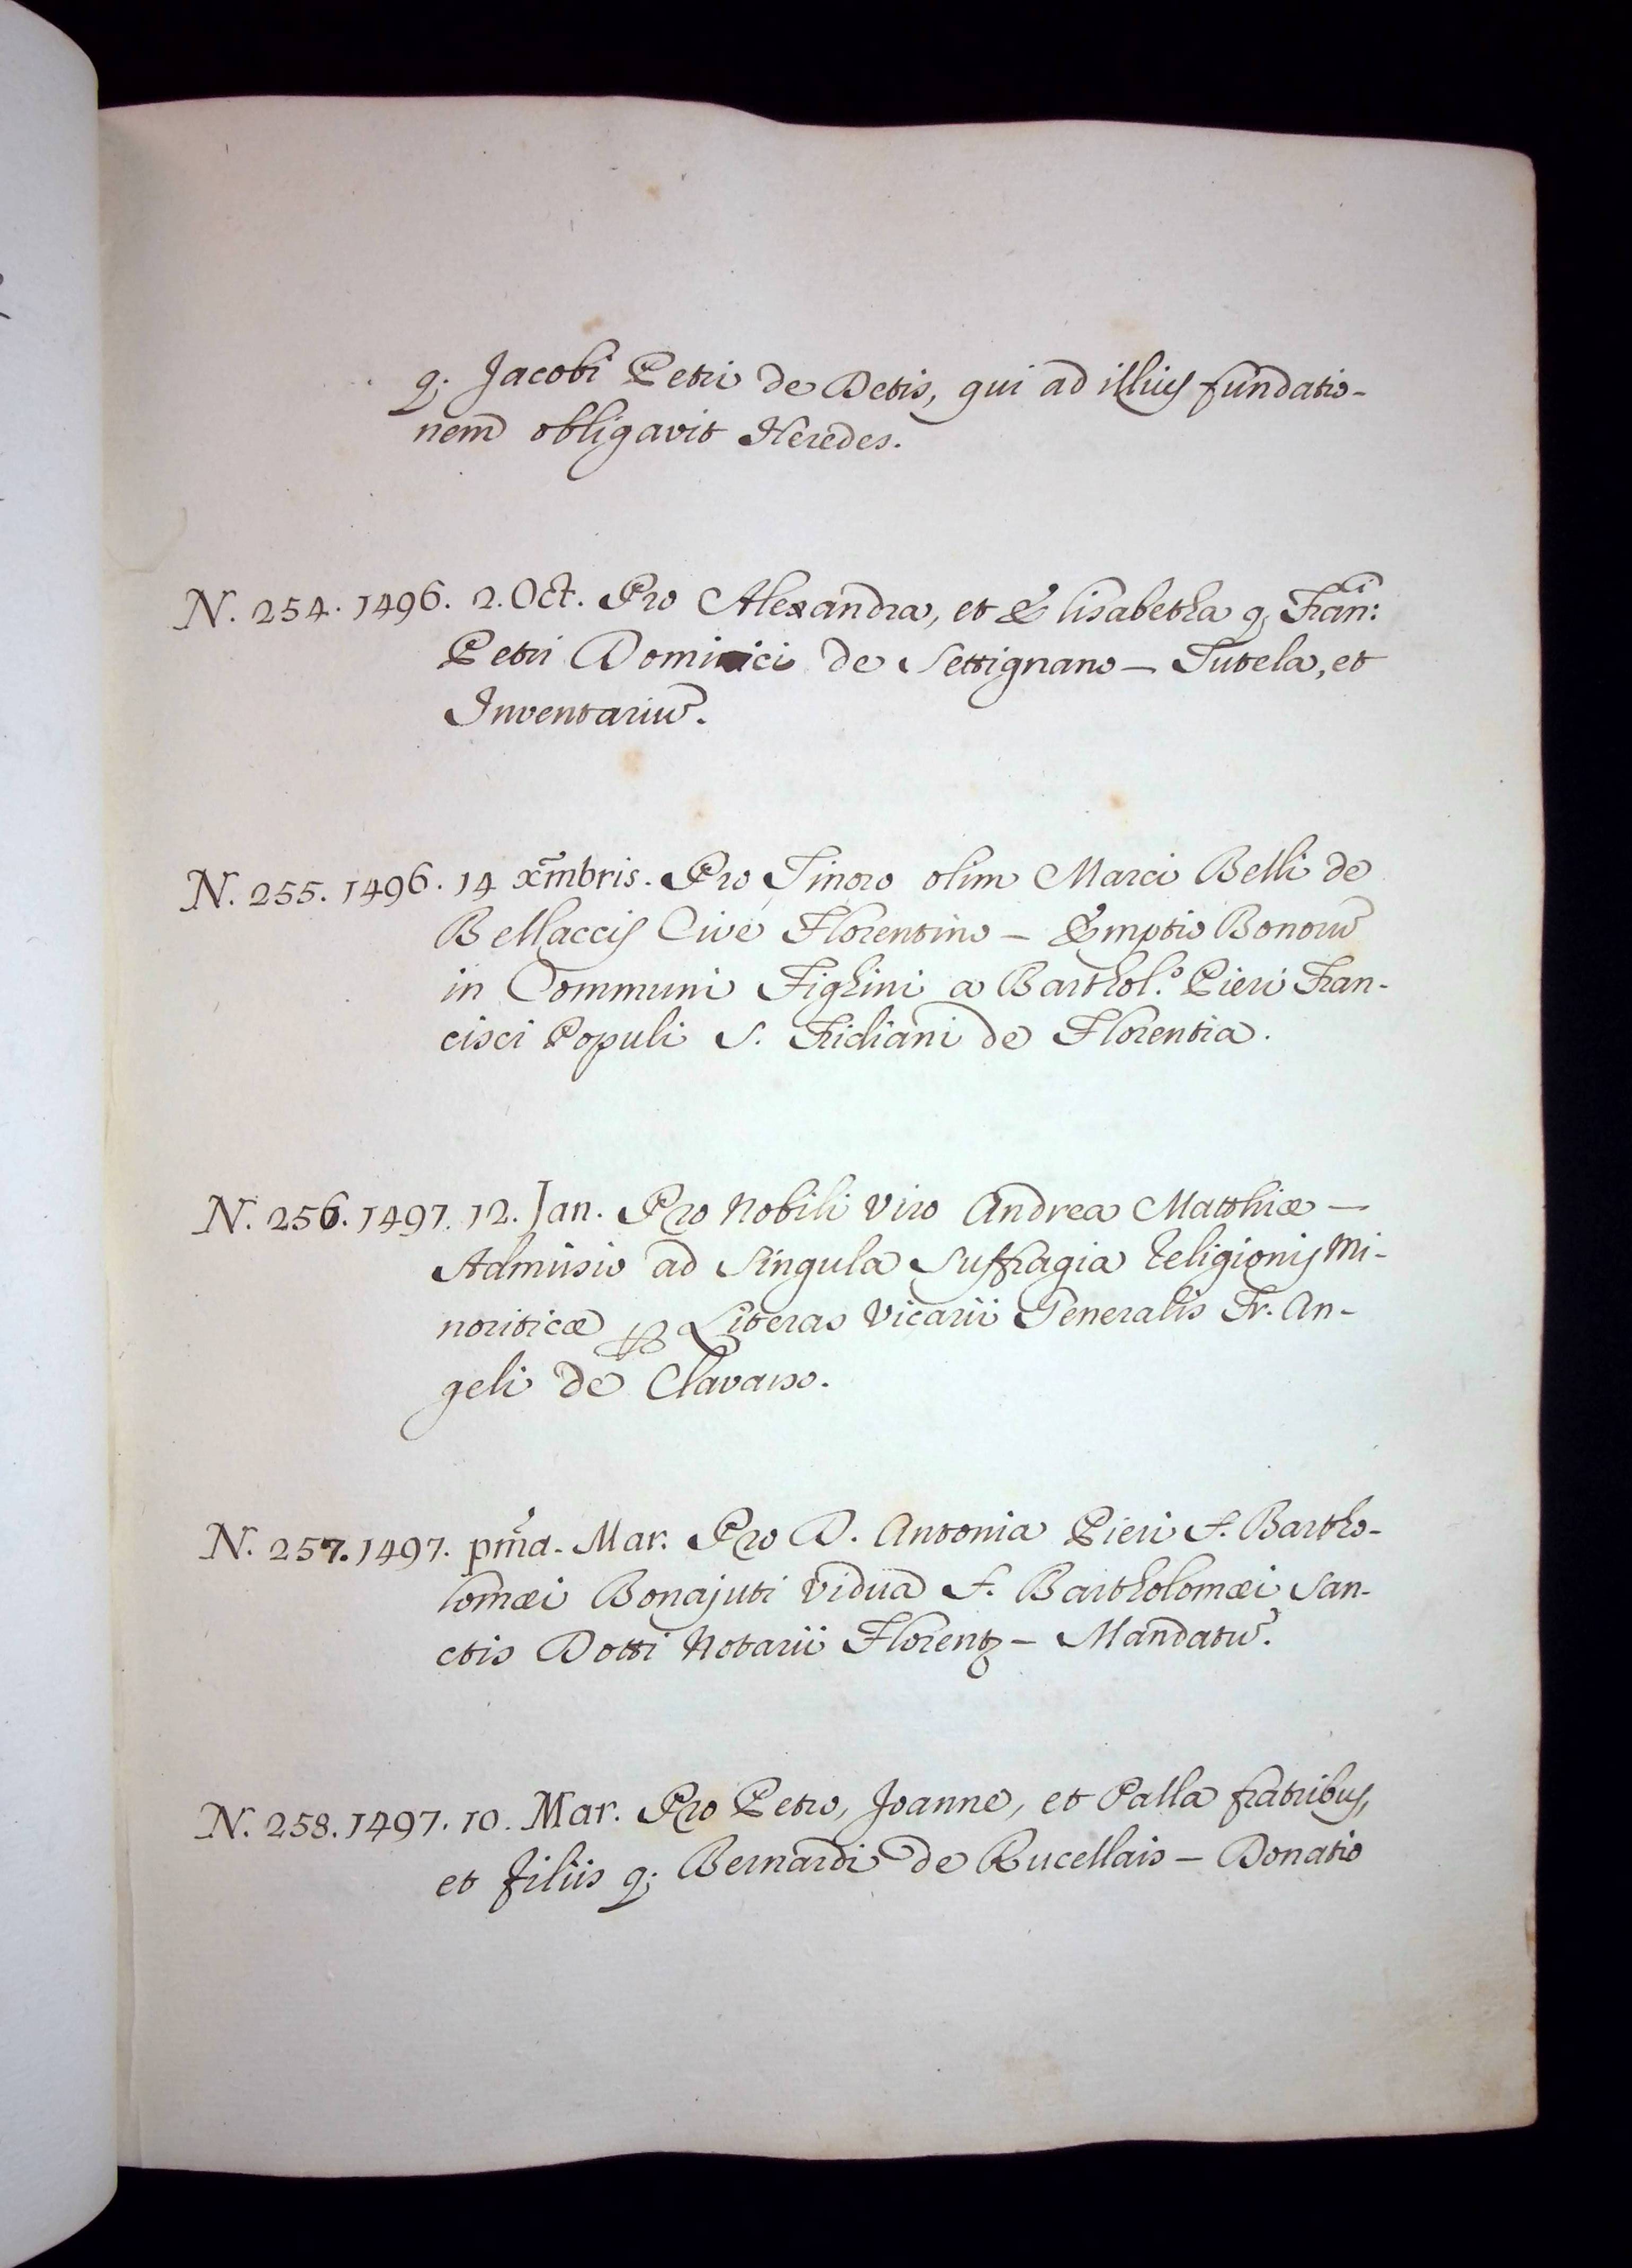 q. Jacobi Petri de Detis, qui ad illius fundatio-
nem obligavit Heredes.
N. 254. 1496. 2. Oct. Pro Alexandra, et Elisabetha q; Fran:ci
Petri Dominici de Settignano – Tutela, et
Inventariu͂.
N. 255. 1496. 14 x͂mbris. Pro Tinoro olim Marci Belli de
Bellaccis Cive Florentino – Emptio Bonoru͂
in Communi Fighini a Barthol.o Pieri Fran-
cisci Populi S. Fridiani de Florentia.
N. 256. 1497. 12. Jan. Pro Nobili Viro Andrea Matthiæ –
Admissio ad singula Suffragia Religionis Mi-
noriticæ ꝑ Literas Vicarii Generalis Fr. An-
geli de Clavaso.
N. 257. 1497. pm̃a. Mar. Pro D. Antonia Pieri S. Bartho-
lomæi Bonajuti Vidua S. Bartholomæi San-
ctis Dotti Notarii Florentꝫ – Mandatu͂.
N. 258. 1497. 10. Mar. Pro Petro, Joanne, et Palla fratribus,
et filiis q; Bernardi de Rucellais – Donatio